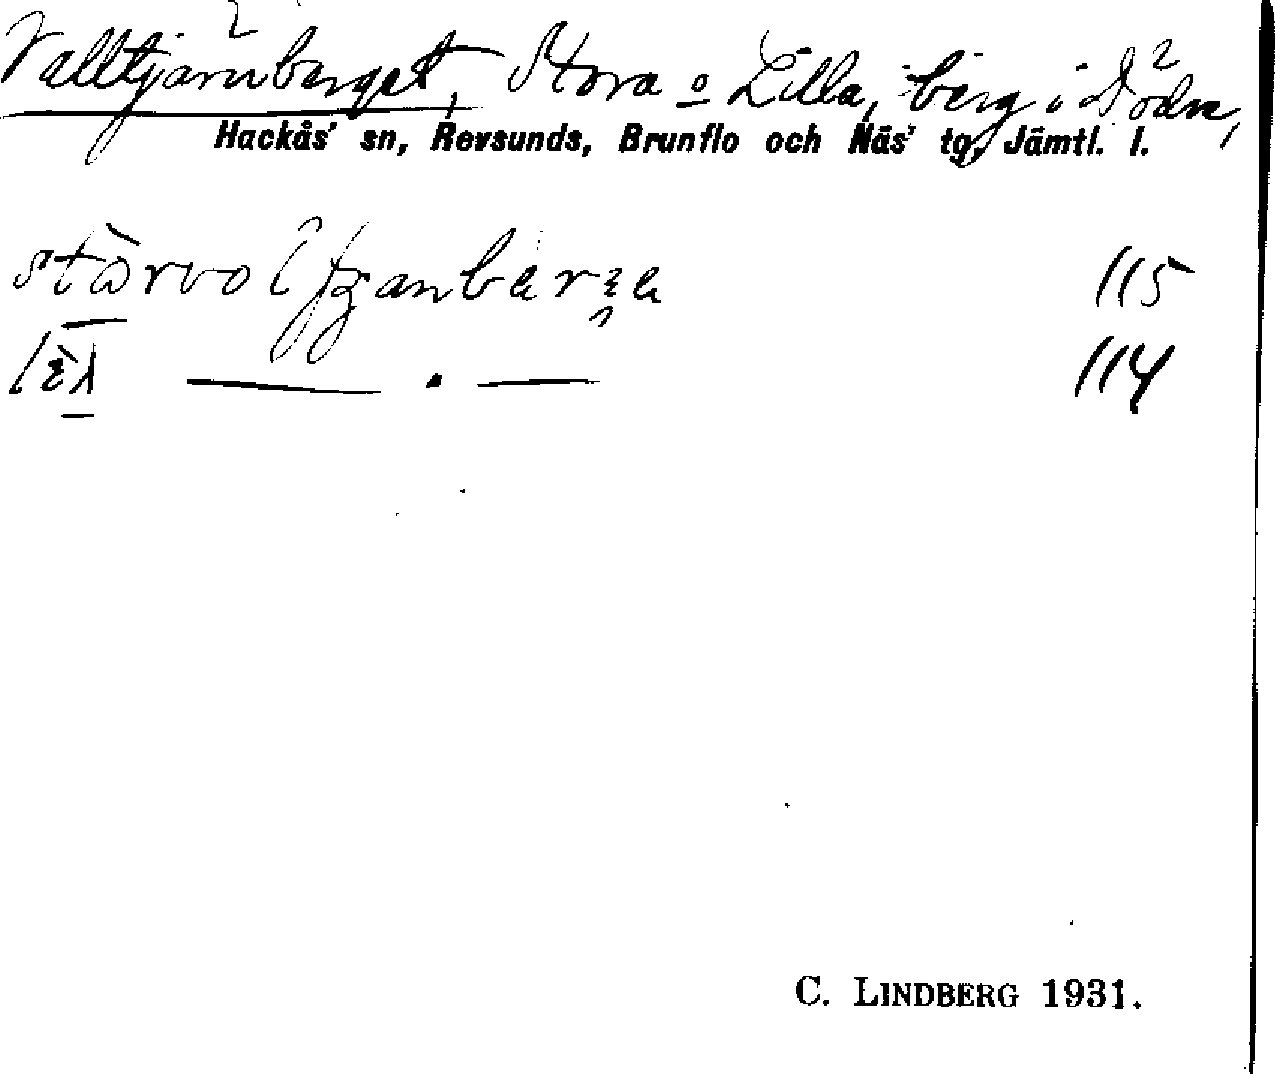 Valltjärnberget, Stora o Lilla, berg i Dödre,
Hackås' sn, Revsunds, Brunflo och Näs' tg, Jämtl. l.
115
114
C. LINDBERG 1931.